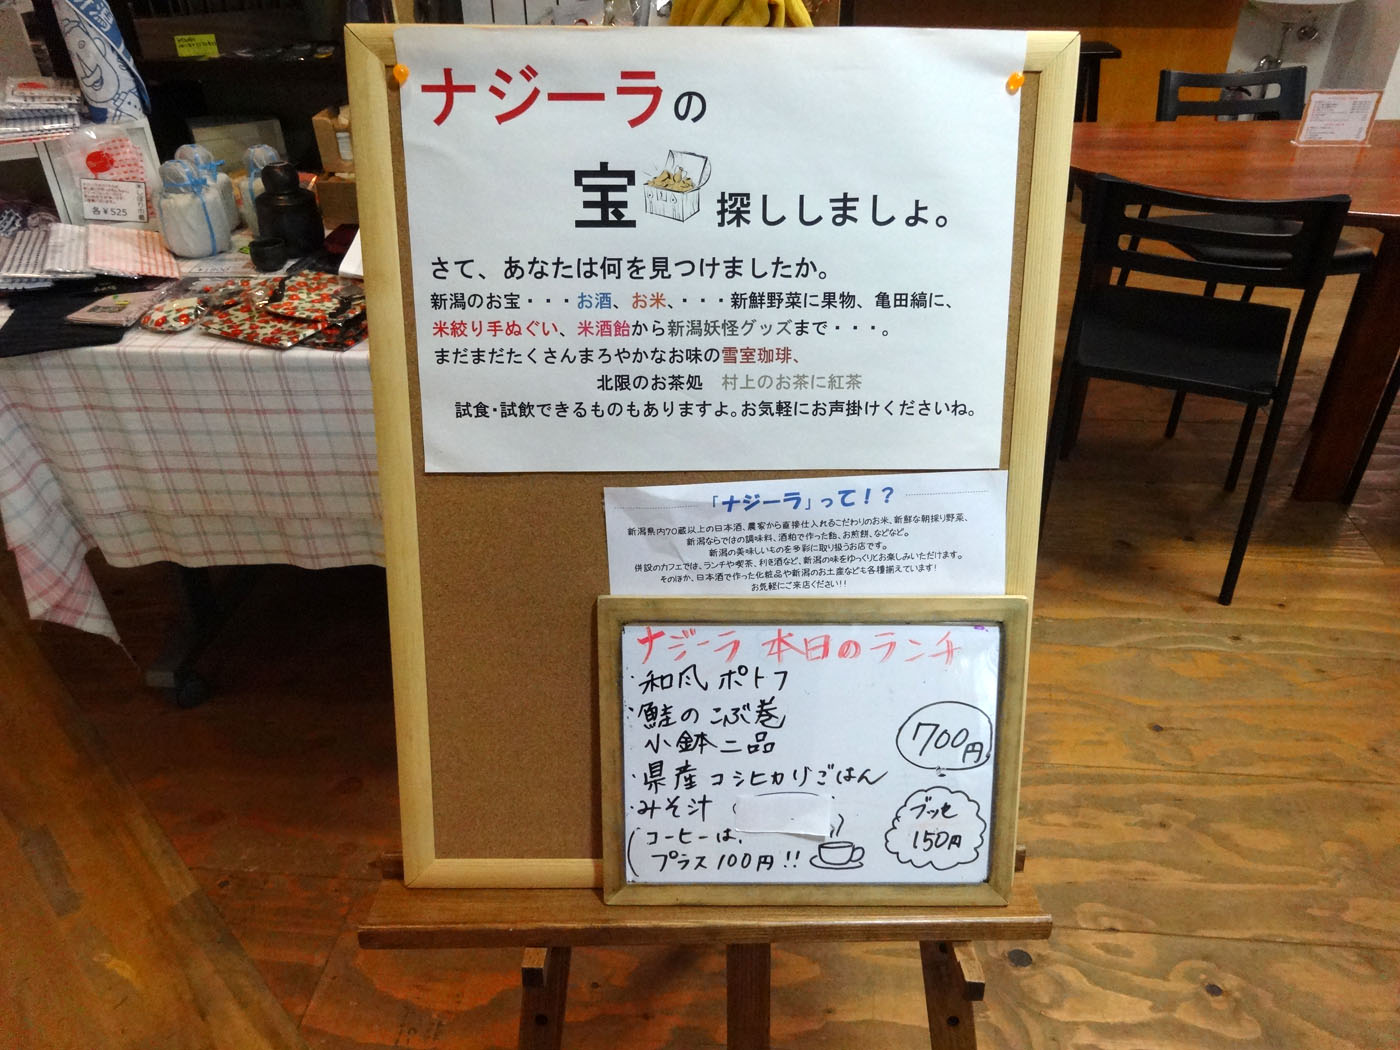 ナジーラの
宝 探ししましょ。
さて、あなたは何を見つけましたか。
新潟のお宝・・・お酒、お米、・・・新鮮野菜に果物、亀田縞に、
米絞り手ぬぐい、米酒飴から新潟妖怪グッズまで・・・。
まだまだたくさんまろやかなお味の雪室珈琲、
北限のお茶処 村上のお茶に紅茶
試食・試飲できるものもありますよ。お気軽にお声掛けくださいね。
「ナジーラ」って!?
新潟県内70蔵以上の日本酒、農家から直接仕入れるこだわりのお米、新鮮な朝採り野菜、
新潟ならではの調味料、酒粕で作った飴、お煎餅、などなど。
新潟の美味しいものを多彩に取り扱うお店です。
併設のカフェでは、ランチや喫茶、利き酒など、新潟の味をゆっくりとお楽しみいただけます。
そのほか、日本酒で作った化粧品や新潟のお土産なども各種揃えています!
お気軽にご来店ください!!
ナジーラ 本日のランチ
・和風ポトフ
・鮭のこぶ巻
小鉢二品
・県産コシヒカリごはん
・みそ汁
(コーヒーは、
プラス100円!!
700円
ブッセ
150円
各¥525